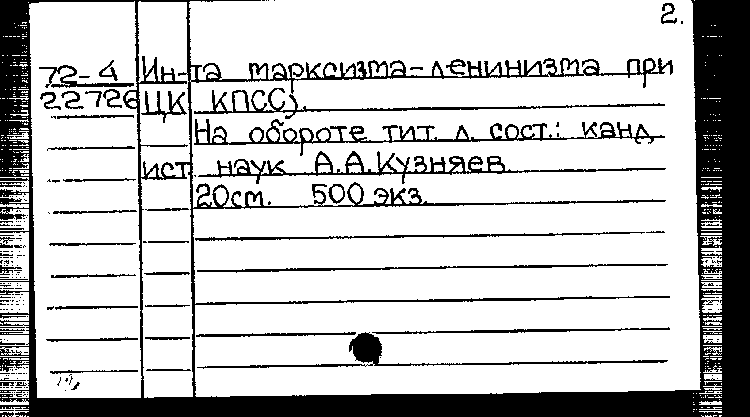 2.
72-4 Ин-та марксизма-ленинизма при
22726 ЦК КПСС).
На обороте тит. л. сост.: канд
ист наук А.А.Кузняев.
20см. 500 экз.